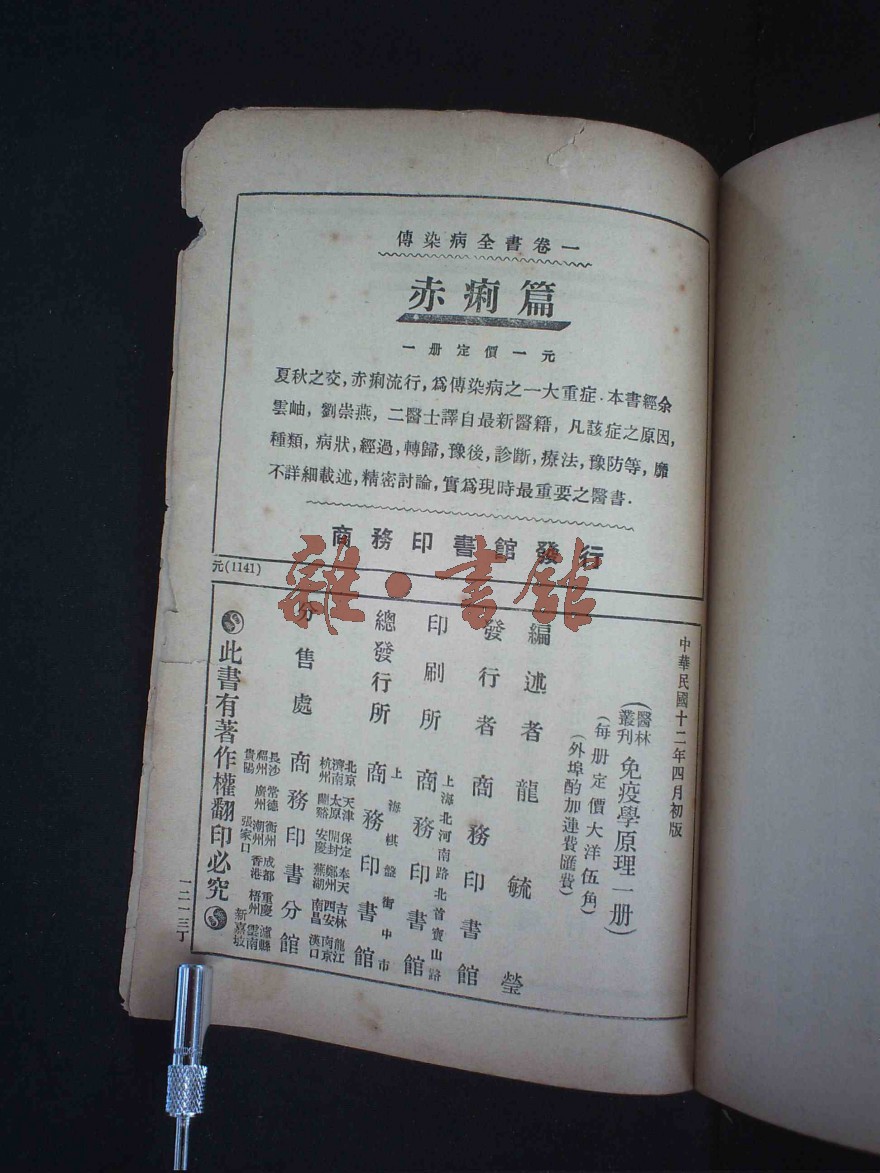 傳染病全書卷一
赤痢篇
一册定價一元
夏秋之交，赤痢流行，爲傳染病之一大重症．本書經余
雲岫，劉崇燕，二醫士譯自最新醫籍，凡該症之原因，
種類，病狀，經過，轉歸，豫後，診斷，療法，豫防等，靡
不詳細載述，精密討論，實爲現時最重要之醫書．
商務印書館發行
元(1141)
雜·書館
中華民國十二年四月初版
(醫林叢刊 免疫學原理一册)
(每册定價大洋伍角)
(外埠酌加運費匯費)
編述者 龍毓瑩
發行者 商務印書館
上海北河南路北首寶山路
印刷所 商務印書館
上海棋盤街中市
總發行所 商務印書館
北京 天津 保定 奉天 吉林 龍江
濟南 太原 開封 鄭州 西安 南京
杭州 蘭谿 安慶 蕪湖 南昌 漢口
分售處 商務印書分館
長沙 常德 衡州 成都 重慶 瀘縣
福州 廣州 潮州 香港 梧州 雲南
貴陽 張家口 新嘉坡
此書有著作權翻印必究
一二一三丁